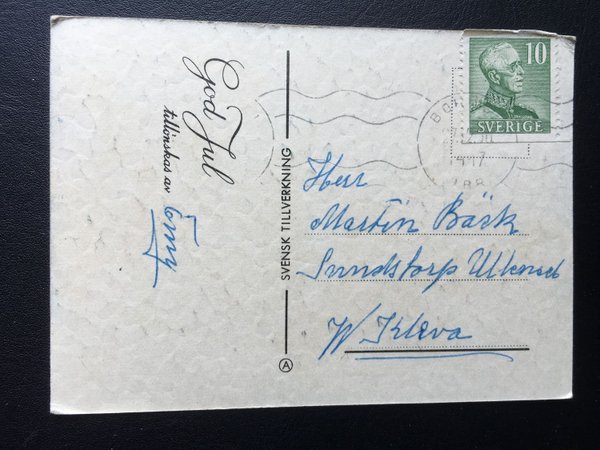 God Jul
tillönskas av
Emy
SVENSK TILLVERKNING
A
10
SVERIGE
Herr
Martin Bäck
Sundstorp
W Kleva